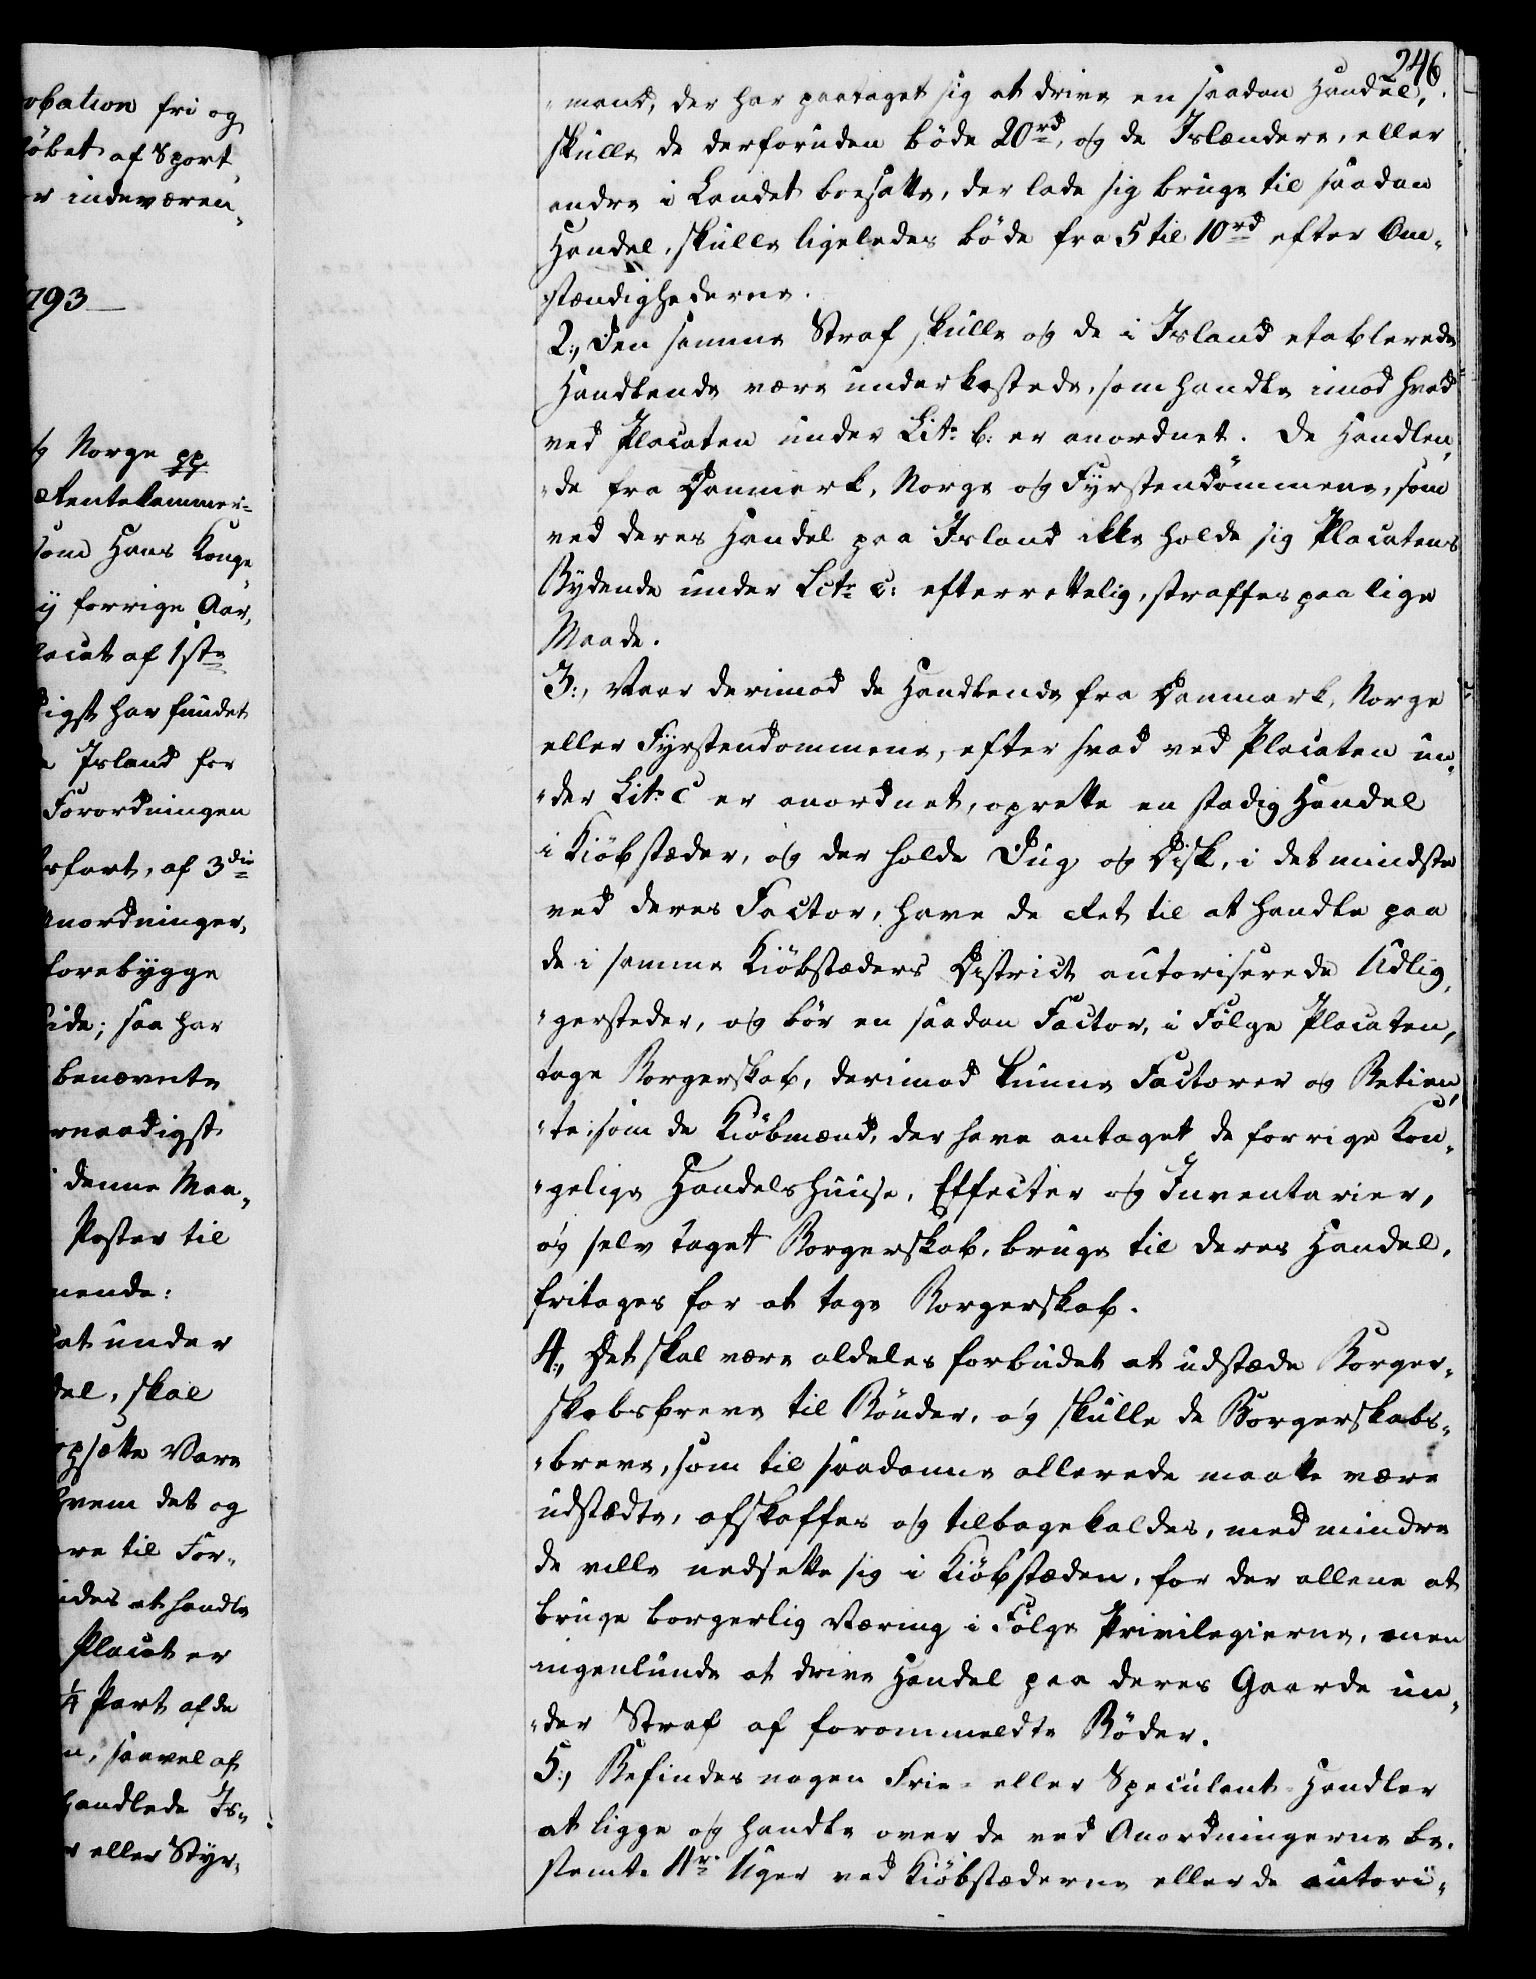 obation fri og
löbet af Sport„
er indeværen„
793
og Norge pp
Rentekammer=
som Hans Konge„
ij forrige Aar,
lacat af 1ste
digst har fundet
Island for
Forordningen
rfart, af 3die
Anordninger,
forebygge
side; saa har
benævnte
rnaadigst
denne Maa„
Poster til
nende:
cat under
del, skal
opsætte Vare
hvem det og
ere til For„
ides at handle
Placat er
¼ Part af de
n, saavel af
handlede Is„
r eller Styr„
246
„mand, der har paataget sig at drive en saadan Handel,
skulle de derforuden böde 20rd, og de Islændere, eller
andre i Landet boesatte, der lade sig bruge til saadan
Handel, skulle ligeledes böde fra 5 til 10rd efter Om„
stændighederne.
2:, Den samme Straf skulle og de i Island etablerede
Handlende være underkastede, som handle imod hvad
ved Placaten under Litr. b: er anordnet. De Handlen„
„de fra Danmark, Norge og Fyrstendömmene, som
ved deres Handel paa Island ikke holde sig Placatens
Bydende under Litr. c: efterrettelig, straffes paa lige
Maade.
3:, Naar derimod de Handlende fra Danmark, Norge
eller Fyrstendommene, efter hvad ved Placaten un„
„der Litr. c er anordnet, oprette en stadig Handel
i Kiöbstæder, og der holde Dug og Disk, i det mindste
ved deres Factor, have de Ret til at handle paa
de i samme Kiöbstæders District autoriserede Udlig„
„gersteder, og bör en saadan Factor, i Fölge Placaten,
tage Borgerskab, derimod kunne Factorer og Betien„
„te, som de Kiöbmænd, der have antaget de forrige Kon„
„gelige Handelshuuse, Effecter og Inventarier,
og selv taget Borgerskab, bruge til deres Handel,
fritages for at tage Borgerskab.
4:, Det skal være aldeles forbudet at udstæde Borger„
skabsbreve til Bönder, og skulle de Borgerskabs„
„breve, som til saadanne allerede maatte være
udstædte, afskaffes og tilbagekaldes, med mindre
de ville nedsette sig i Kiöbstæden, for der allene at
bruge borgerlig Næring i Fölge Privilegierne, men
ingenlunde at drive Handel paa deres Gaarde un„
„der Straf af forommeldte Böder.
5:, Befindes nogen Frie- eller Speculant-Handler
at ligge og handle over de ved Anordningerne be„
stemte 4re Uger ved Kiöbstæderne eller de autori„